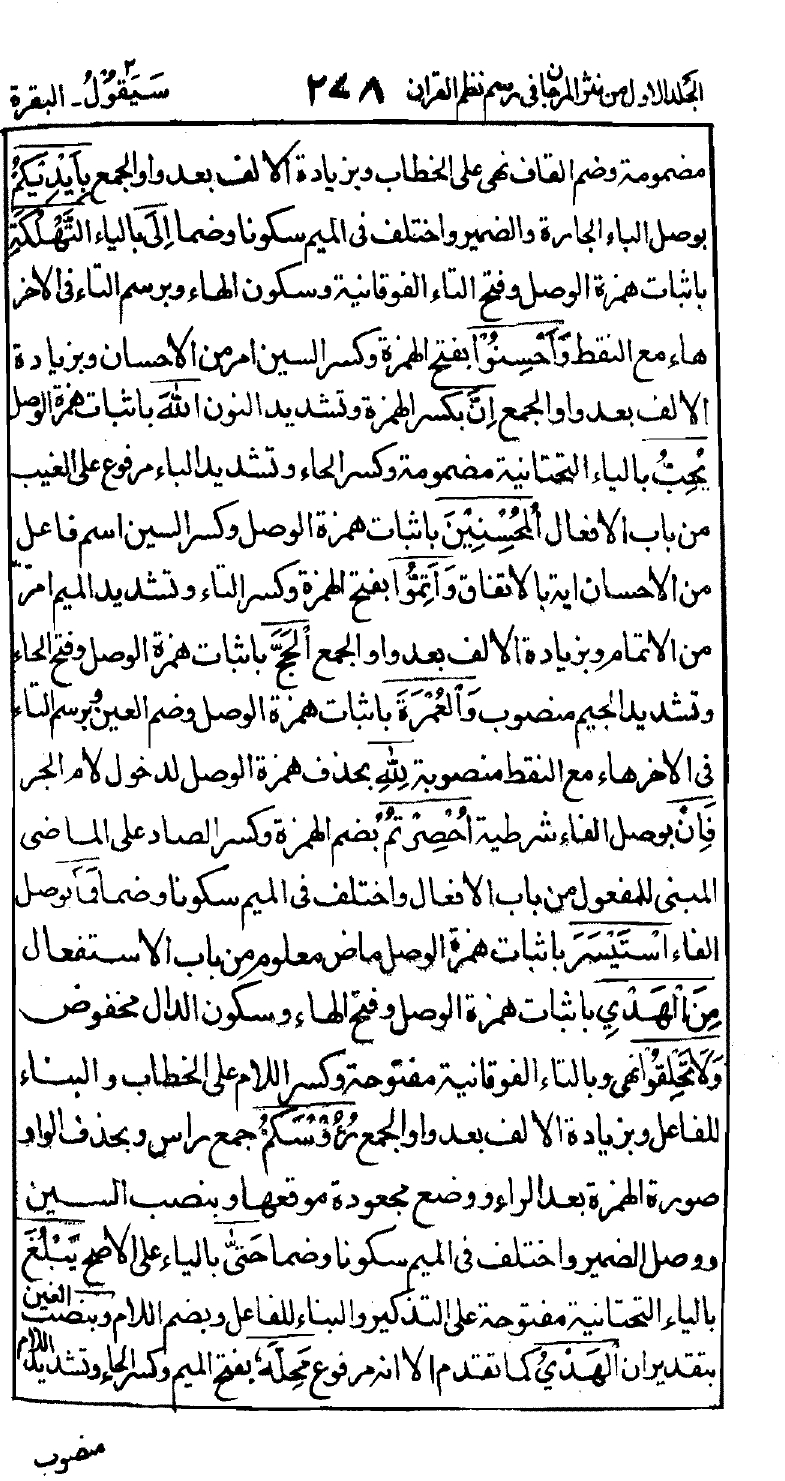 الجلد الاول من نثر المرجان فى رسم نظم القران ٢٤٨ سَيَقُوْلُ ٢ ـ البقرة
مضمومة وضم القاف نهى على الخطاب وبزيادة الالف بعد واو الجمع بِأَيْدِيْكُمْ
بوصل الباء الجارة والضمير واختلف فى الميم سكونا وضما إِلَى بالياء التَّهْلُكَةِ
باثبات همزة الوصل وفتح التاء الفوقانية وسكون الهاء وبرسم التاء فى الاخر
هاء مع النقط وَأَحْسِنُوْا بفتح الهمزة وكسر السين امر من الاحسان وبزيادة
الالف بعد واو الجمع إِنَّ بكسر الهمزة وتشديد النون اللهَ باثبات همزة الوصل
يُحِبُّ بالياء التحتانية مضمومة وكسر الحاء وتشديد الباء مرفوع على الغيب
من باب الافعال الْمُحْسِنِيْنَ باثبات همزة الوصل وكسر السين اسم فاعل
من الاحسان اية بالاتفاق وَأَتِمُّوا بفتح الهمزة وكسر التاء وتشديد الميم امر
من الاتمام وبزيادة الالف بعد واو الجمع الْحَجَّ باثبات همزة الوصل وفتح الحاء
وتشديد الجيم منصوب وَالْعُمْرَةَ باثبات همزة الوصل وضم العين وبرسم التاء
فى الاخر هاء مع النقط منصوبة لِلّٰهِ بحذف همزة الوصل لدخول لام الجر
فَإِنْ بوصل الفاء شرطية أُحْصِرْتُمْ بضم الهمزة وكسر الصاد على الماضى
المبنى للمفعول من باب الافعال واختلف فى الميم سكونا وضما فَمَا بوصل
الفاء اسْتَيْسَرَ باثبات همزة الوصل ماض معلوم من باب الاستفعال
مِنَ الْهَدْيِ باثبات همزة الوصل وفتح الهاء وسكون الدال مخفوض
وَلَا تَحْلِقُوْا نهى وبالتاء الفوقانية مفتوحة وكسر اللام على الخطاب والبناء
للفاعل وبزيادة الالف بعد واو الجمع رُءُوْسَكُمْ جمع راس وبحذف الواو
صورة الهمزة بعد الراء ووضع مجعودة موقعها وبنصب السين
ووصل الضمير واختلف فى الميم سكونا وضما حَتّٰى بالياء على الاصح يَبْلُغَ
بالياء التحتانية مفتوحة على التذكير والبناء للفاعل وبضم اللام وبنصب الغين
بتقدير ان الْهَدْيُ كما تقدم الا انه مرفوع مَحِلَّهُ بفتح الميم وكسر الحاء وتشديد اللام
منصوب